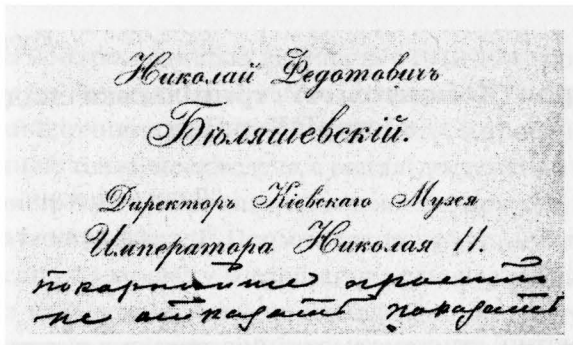 Николай Федотовичъ
Бѣляшевскій.
Директоръ Кіевскаго Музея
Императора Николая II.
покорнѣйше проситъ
не отказать показать